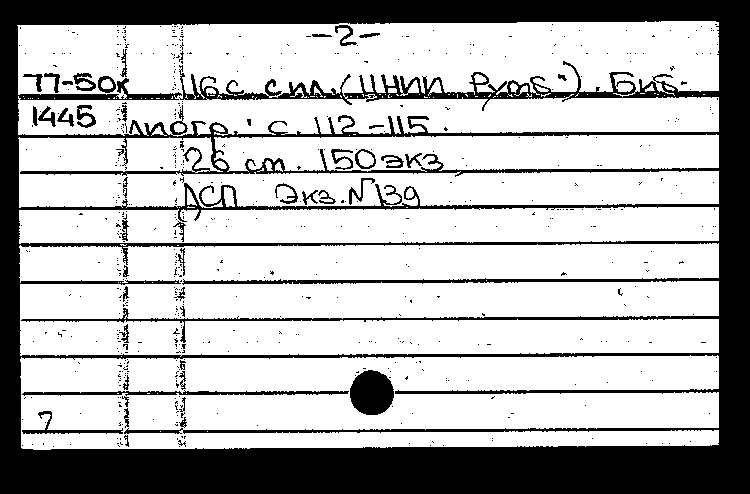 -2-
77-50к 116 с с ил. (ЦНИИ "Румб"). Биб-
1445 лиогр.: с. 112-115.
26 см. 150 экз
ДСП Экз. №139
7